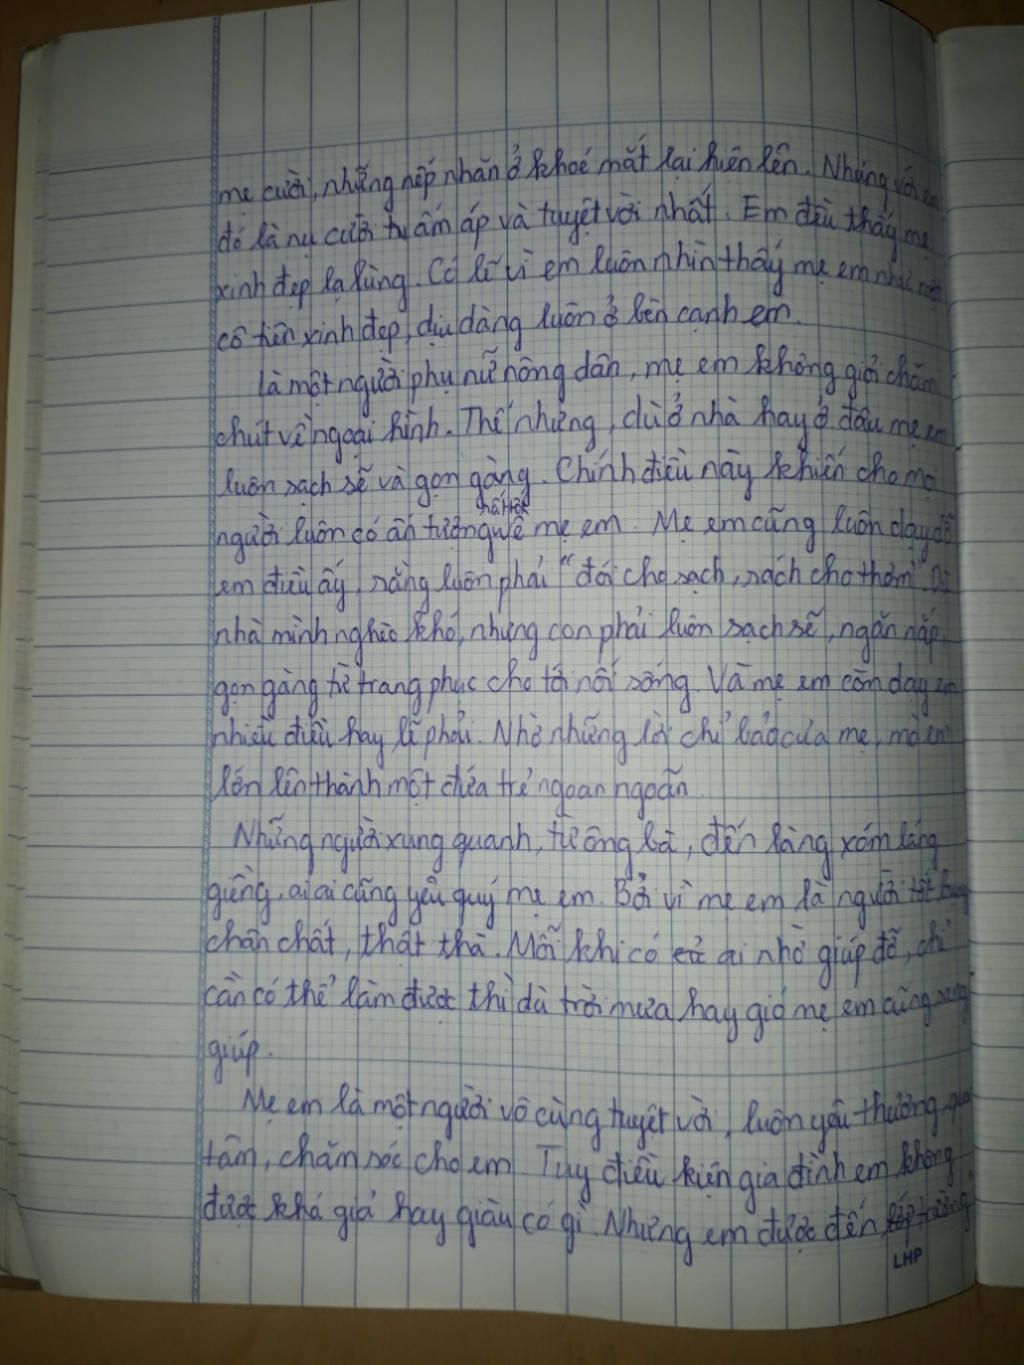 mẹ cười, những nếp nhăn ở khoé mắt lại hiện lên. Nhưng với em
đó là nụ cười ấm áp và tuyệt vời nhất. Em đều thấy mẹ
xinh đẹp lạ lùng. Có lẽ vì em luôn nhìn thấy mẹ em như một
cô tiên xinh đẹp, dịu dàng luôn ở bên cạnh em.
Là một người phụ nữ nông dân, mẹ em không giỏi chăm
chút về ngoại hình. Thế nhưng, dù ở nhà hay ở đâu mẹ em
luôn sạch sẽ và gọn gàng. Chính điều này khiến cho mọi
rất tốt
người luôn có ấn tượng về mẹ em. Mẹ em cũng luôn dạy dỗ
em điều ấy, rằng luôn phải "đói cho sạch, rách cho thơm". Dù
nhà mình nghèo khó, nhưng con phải luôn sạch sẽ, ngăn nắp,
gọn gàng từ trang phục cho tới nối sống. Và mẹ em còn dạy em
nhiều điều hay lẽ phải. Nhờ những lời chỉ bảo của mẹ, mà em
lớn lên thành một đứa trẻ ngoan ngoãn.
Những người xung quanh, từ ông bà, đến làng xóm láng
giềng, ai ai cũng yêu quý mẹ em. Bởi vì mẹ em là người tốt bụng
chân chất, thật thà. Mỗi khi có ai nhờ giúp đỡ, chỉ
cần có thể làm được thì dù trời mưa hay gió mẹ em cũng sang
giúp.
Mẹ em là một người vô cùng tuyệt vời, luôn yêu thương, quan
tâm, chăm sóc cho em. Tuy điều kiện gia đình em không
được khá giả hay giàu có gì. Nhưng em được đến trường
LHP